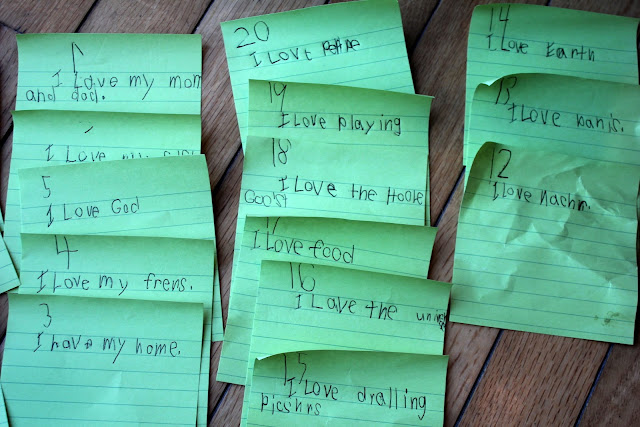 1
I Love my mom
and dad.
I Love
5
I Love God
4
I Love my frens.
3
I have my home.
20
I Love
19
I Love playing
18
I Love the Hoole
Goost
17
I Love food
16
I Love the
15
I Love dralling
picshrs
14
I Love Earth
13
I Love banjs.
12
I love Nachr.